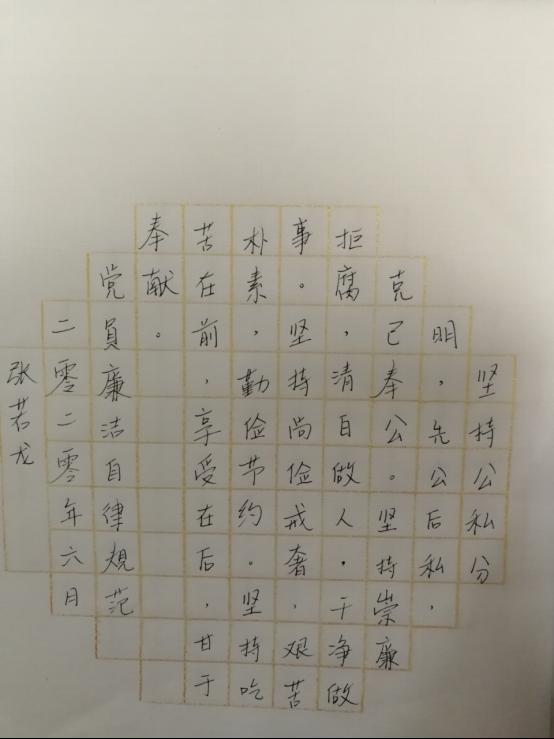 坚持公私分
明，先公后私，
克己奉公。坚持崇廉
拒腐，清白做人，干净做
事。坚持尚俭戒奢，艰苦
朴素，勤俭节约。坚持吃
苦在前，享受在后，甘于
奉献。
党員廉洁自律規范
二零二零年六月
张若龙